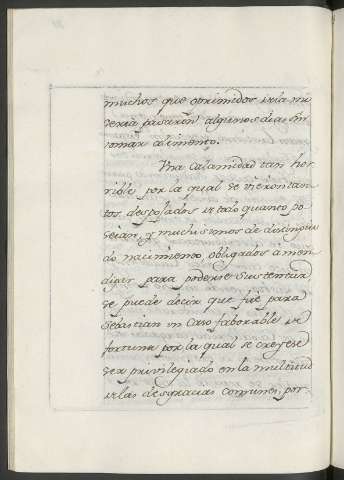 muchos que oprimidos de la mi
seria pasaron algunos dias sin
tomar alimento.
Una calamidad tan hor
rible por la qual se vieron tan
tos despojados de todo quanto po
seian, y muchisimos de distingui
do nacimiento, obligados a men
digar para poderse sustentar
se puede decir que fue para
Sebastian un caso faborable de
fortuna por la qual se creyese
ser privilegiado en la multitud
de las desgracias comunes, por